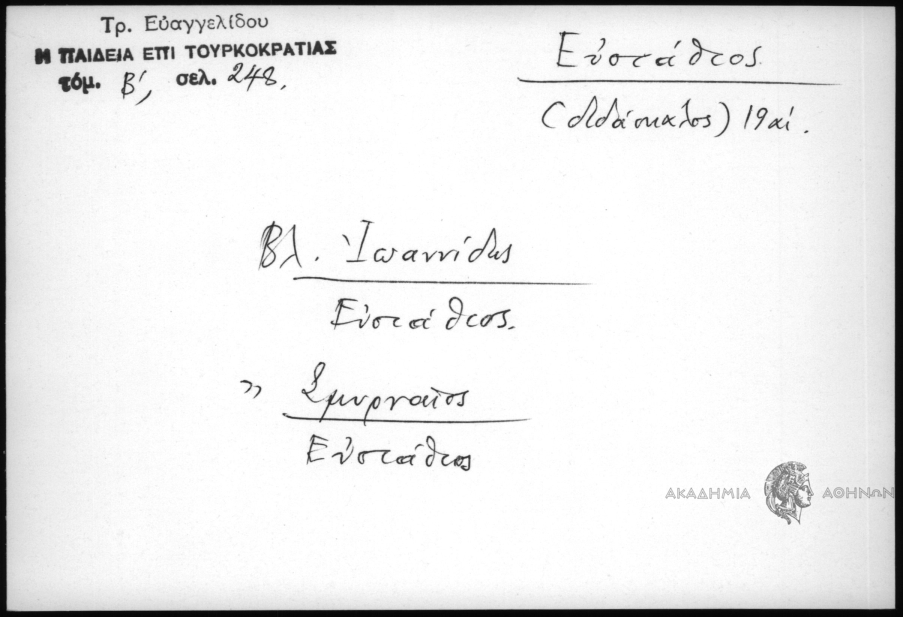 Τρ. Εὐαγγελίδου
Η ΠΑΙΔΕΙΑ ΕΠΙ ΤΟΥΡΚΟΚΡΑΤΙΑΣ
τόμ. Β', σελ. 248.
Εὐστάθιος
(διδάσκαλος) 19 αἰ.
Βλ. Ἰωαννίδης
Εὐστάθιος.
" Σμυρναῖος
Εὐστάθιος
ΑΚΑΔΗΜΙΑ ΑΘΗΝΩΝ